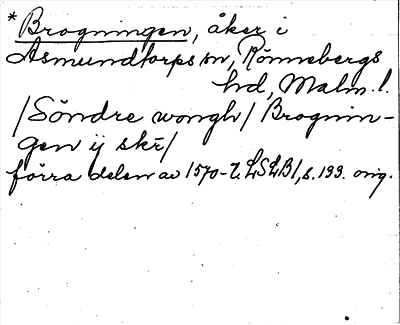 *Brogningen, åker i
Asmundtorps sn, Rönnebergs
hd, Malm. l.
/Söndre wongh/ Brognin-
gen ij skr̄/
förra delen av 1570-t. LSLB1, s. 133. orig.